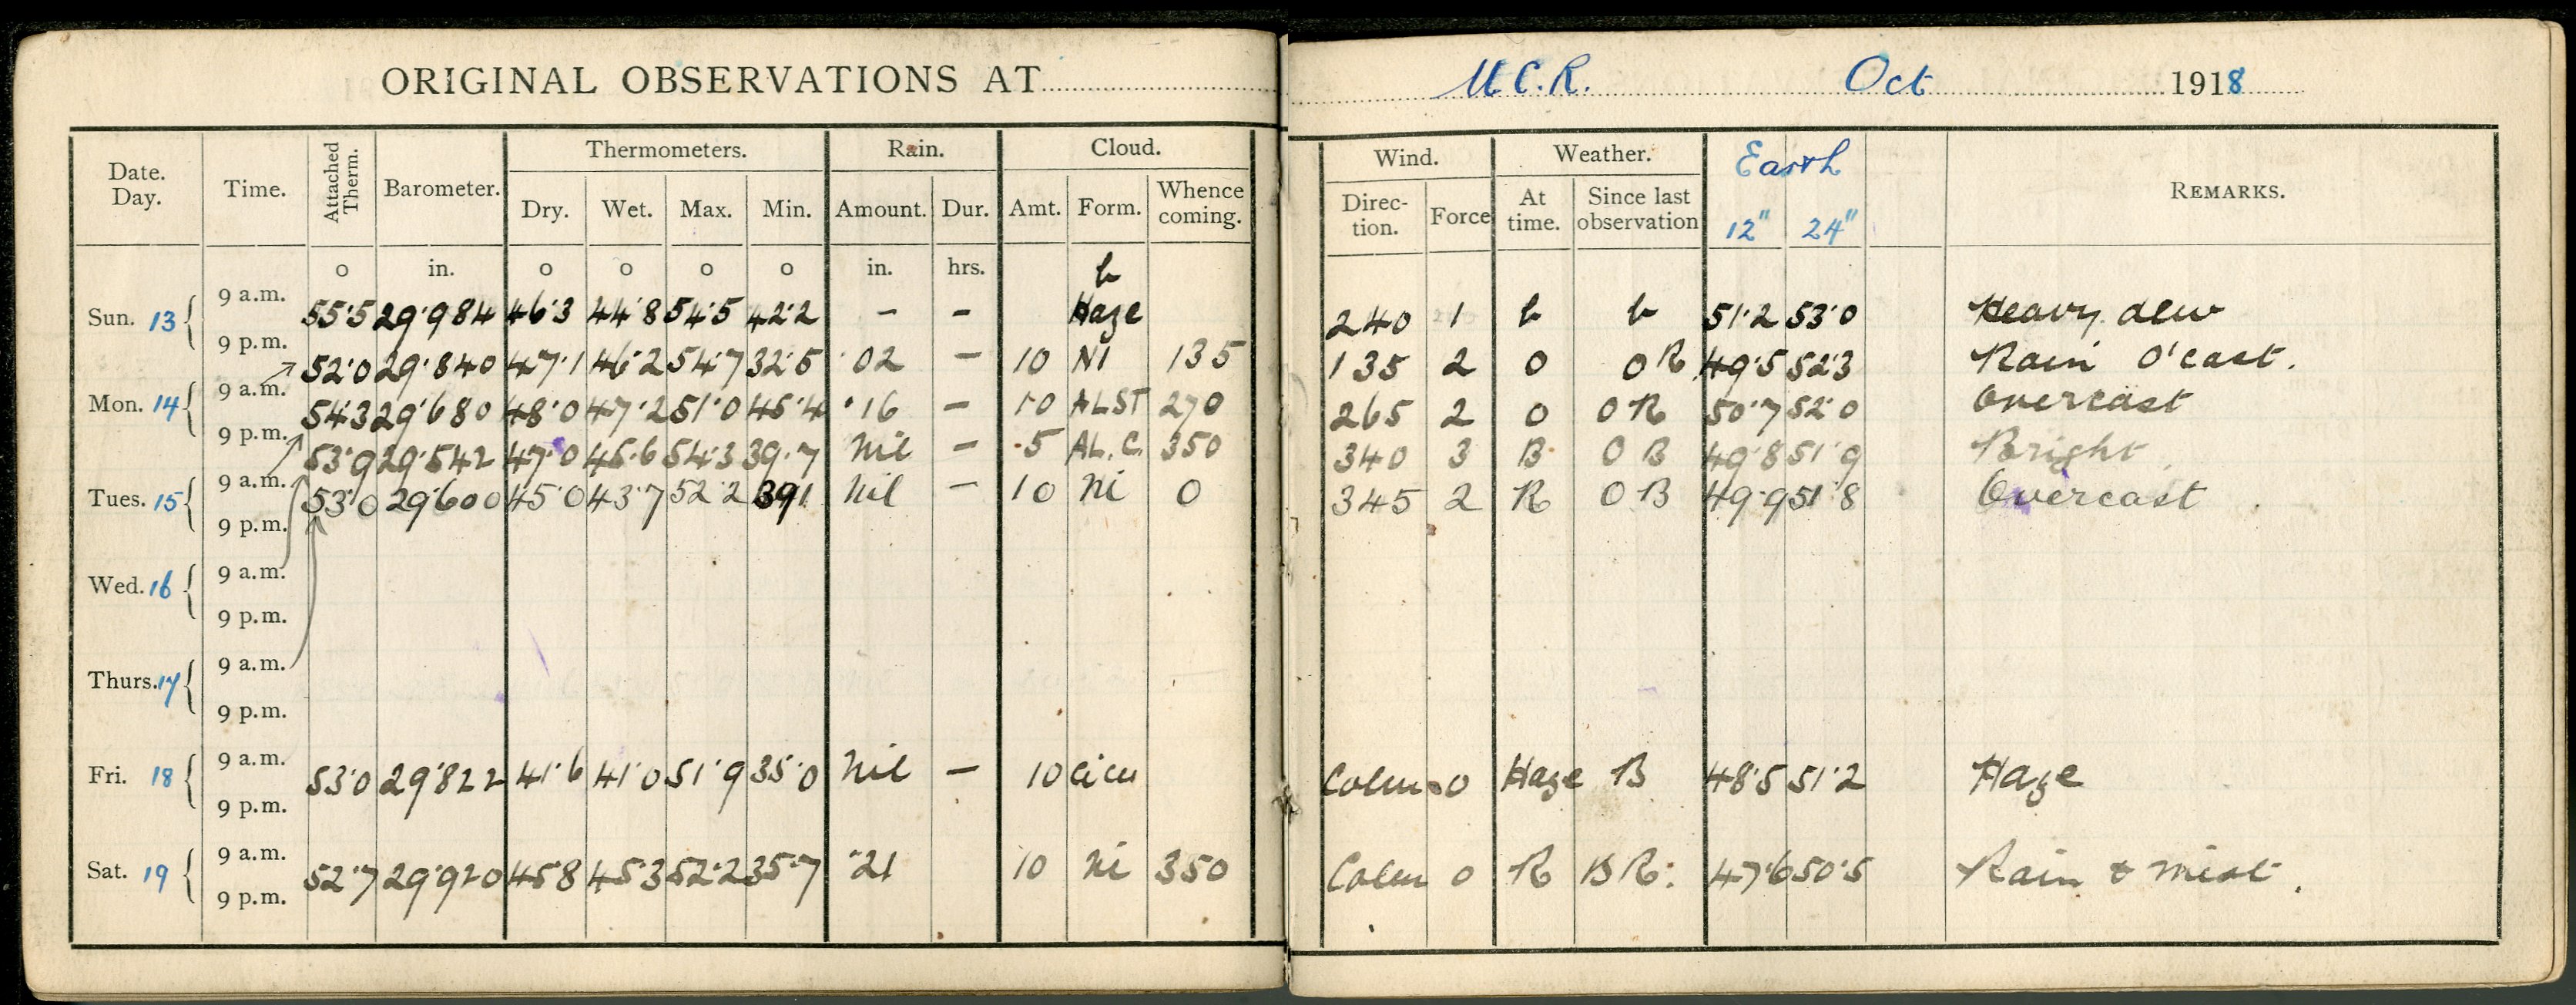 ORIGINAL OBSERVATIONS AT M.C.R. Oct 1918
Date. Day. Time. Attached Therm. Barometer. Thermometers. Rain. Cloud. Wind. Weather. Earth REMARKS.
Dry. Wet. Max. Min. Amount. Dur. Amt. Form. Whence coming. Direc- tion. Force At time. Since last observation 12" 24"
o in. o o o o in. hrs. b
Sun. 13 9 a.m. 55·5 29·984 46·3 44·8 54·5 42·2 - - Haze 240 1 b b 51·2 53·0 Heavy dew
9 p.m.
52·0 29·840 47·1 46·2 54·7 32·5 ·02 - 10 NI 135 135 2 O OR 49·5 52·3 Rain O'cast.
Mon. 14 9 a.m. 54·3 29·680 48·0 47·2 51·0 45·4 ·16 - 10 ALST 270 265 2 O OR 50·7 52·0 Overcast
9 p.m. 53·9 29·542 47·0 45·6 54·3 39·7 Nil - 5 AL.C. 350 340 3 B OB 49·8 51·9 Bright
Tues. 15 9 a.m. 53·0 29·600 45·0 43·7 52·2 39·1 Nil - 10 Ni 0 345 2 R OB 49·9 51·8 Overcast
9 p.m.
Wed. 16 9 a.m.
9 p.m.
Thurs. 17 9 a.m.
9 p.m.
Fri. 18 9 a.m. 53·0 29·822 41·6 41·0 51·9 35·0 Nil - 10 cicu Calm 0 Haze B 48·5 51·2 Haze
9 p.m.
Sat. 19 9 a.m. 52·7 29·920 45·8 45·3 52·2 35·7 ·21 10 Ni 350 Calm 0 R BR: 47·6 50·5 Rain & mist.
9 p.m.